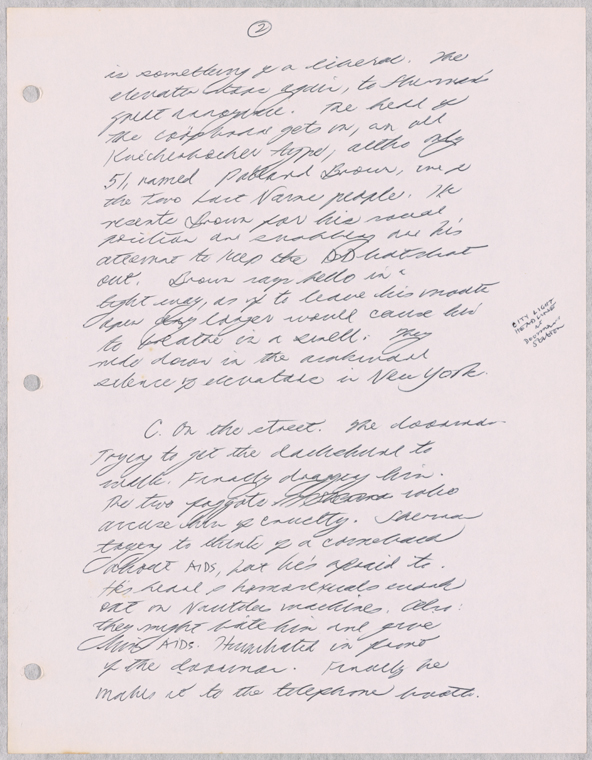 2
is something of a liberal. The
elevator stops again, to Sherman's
great annoyance. The head of
the co-op board gets on, an old
Knickerbocker type, altho only
51, named Pollard Brown, one of
the two Last Name people. He
resents Brown for his social
position and snobbery and his
attempt to keep the
out. Brown says hello in a
tight way, as if to leave his mouth
open any longer would cause him
to breathe in a smell. They
ride down in the awkward
silence of elevators in New York.
CITY LIGHT
HEADLINE
at
Doorman
Station
C. On the street. The doorman
Trying to get the dachshund to
walk. Finally dragging him.
The two faggots who
accuse him of cruelty. Sherman
trying to think of a comeback
about AIDS, but he's afraid to.
He's heard homosexuals work
out on Nautilus machines. Also:
they might bite him and give
him AIDS. Humiliated in front
of the doorman. Finally he
makes it to the telephone booth.